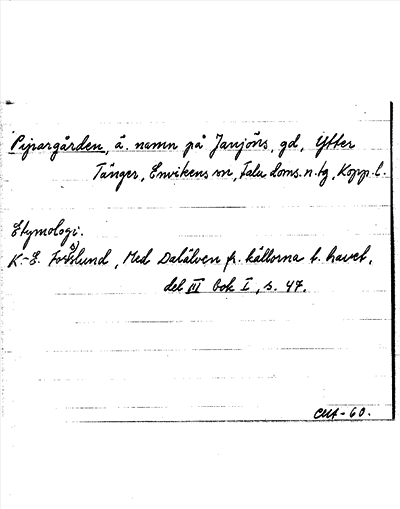 Pipargården, ä. namn på Janjöns, gd, Ytter
Tänger, Envikens sn, Falu doms. n. tg, Kopp. l.
Etymologi.
K.-E. Forsslund, Med Dalälven fr. källorna t. havet,
del III bok I, s. 47.
-60.